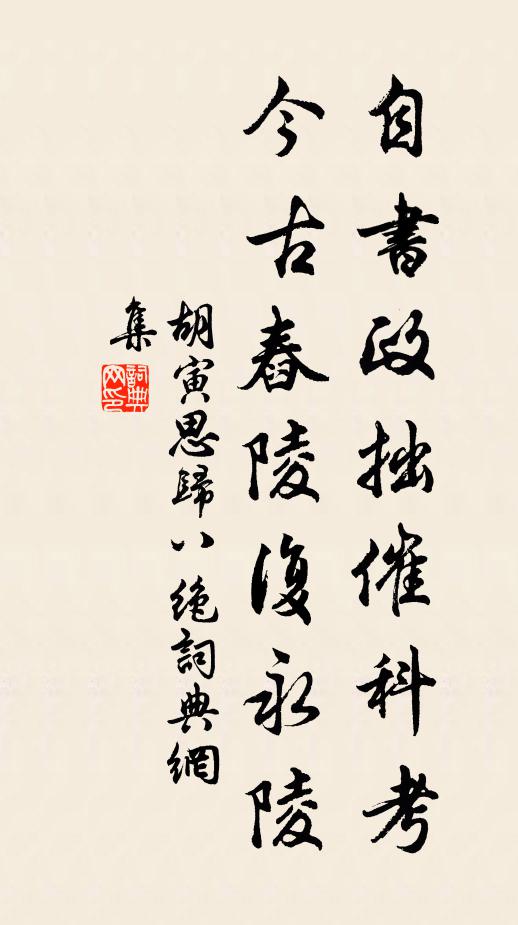 自書政拙催科考
今古舂陵復永陵
胡寅思歸八絶詞典網
集
詞典網印